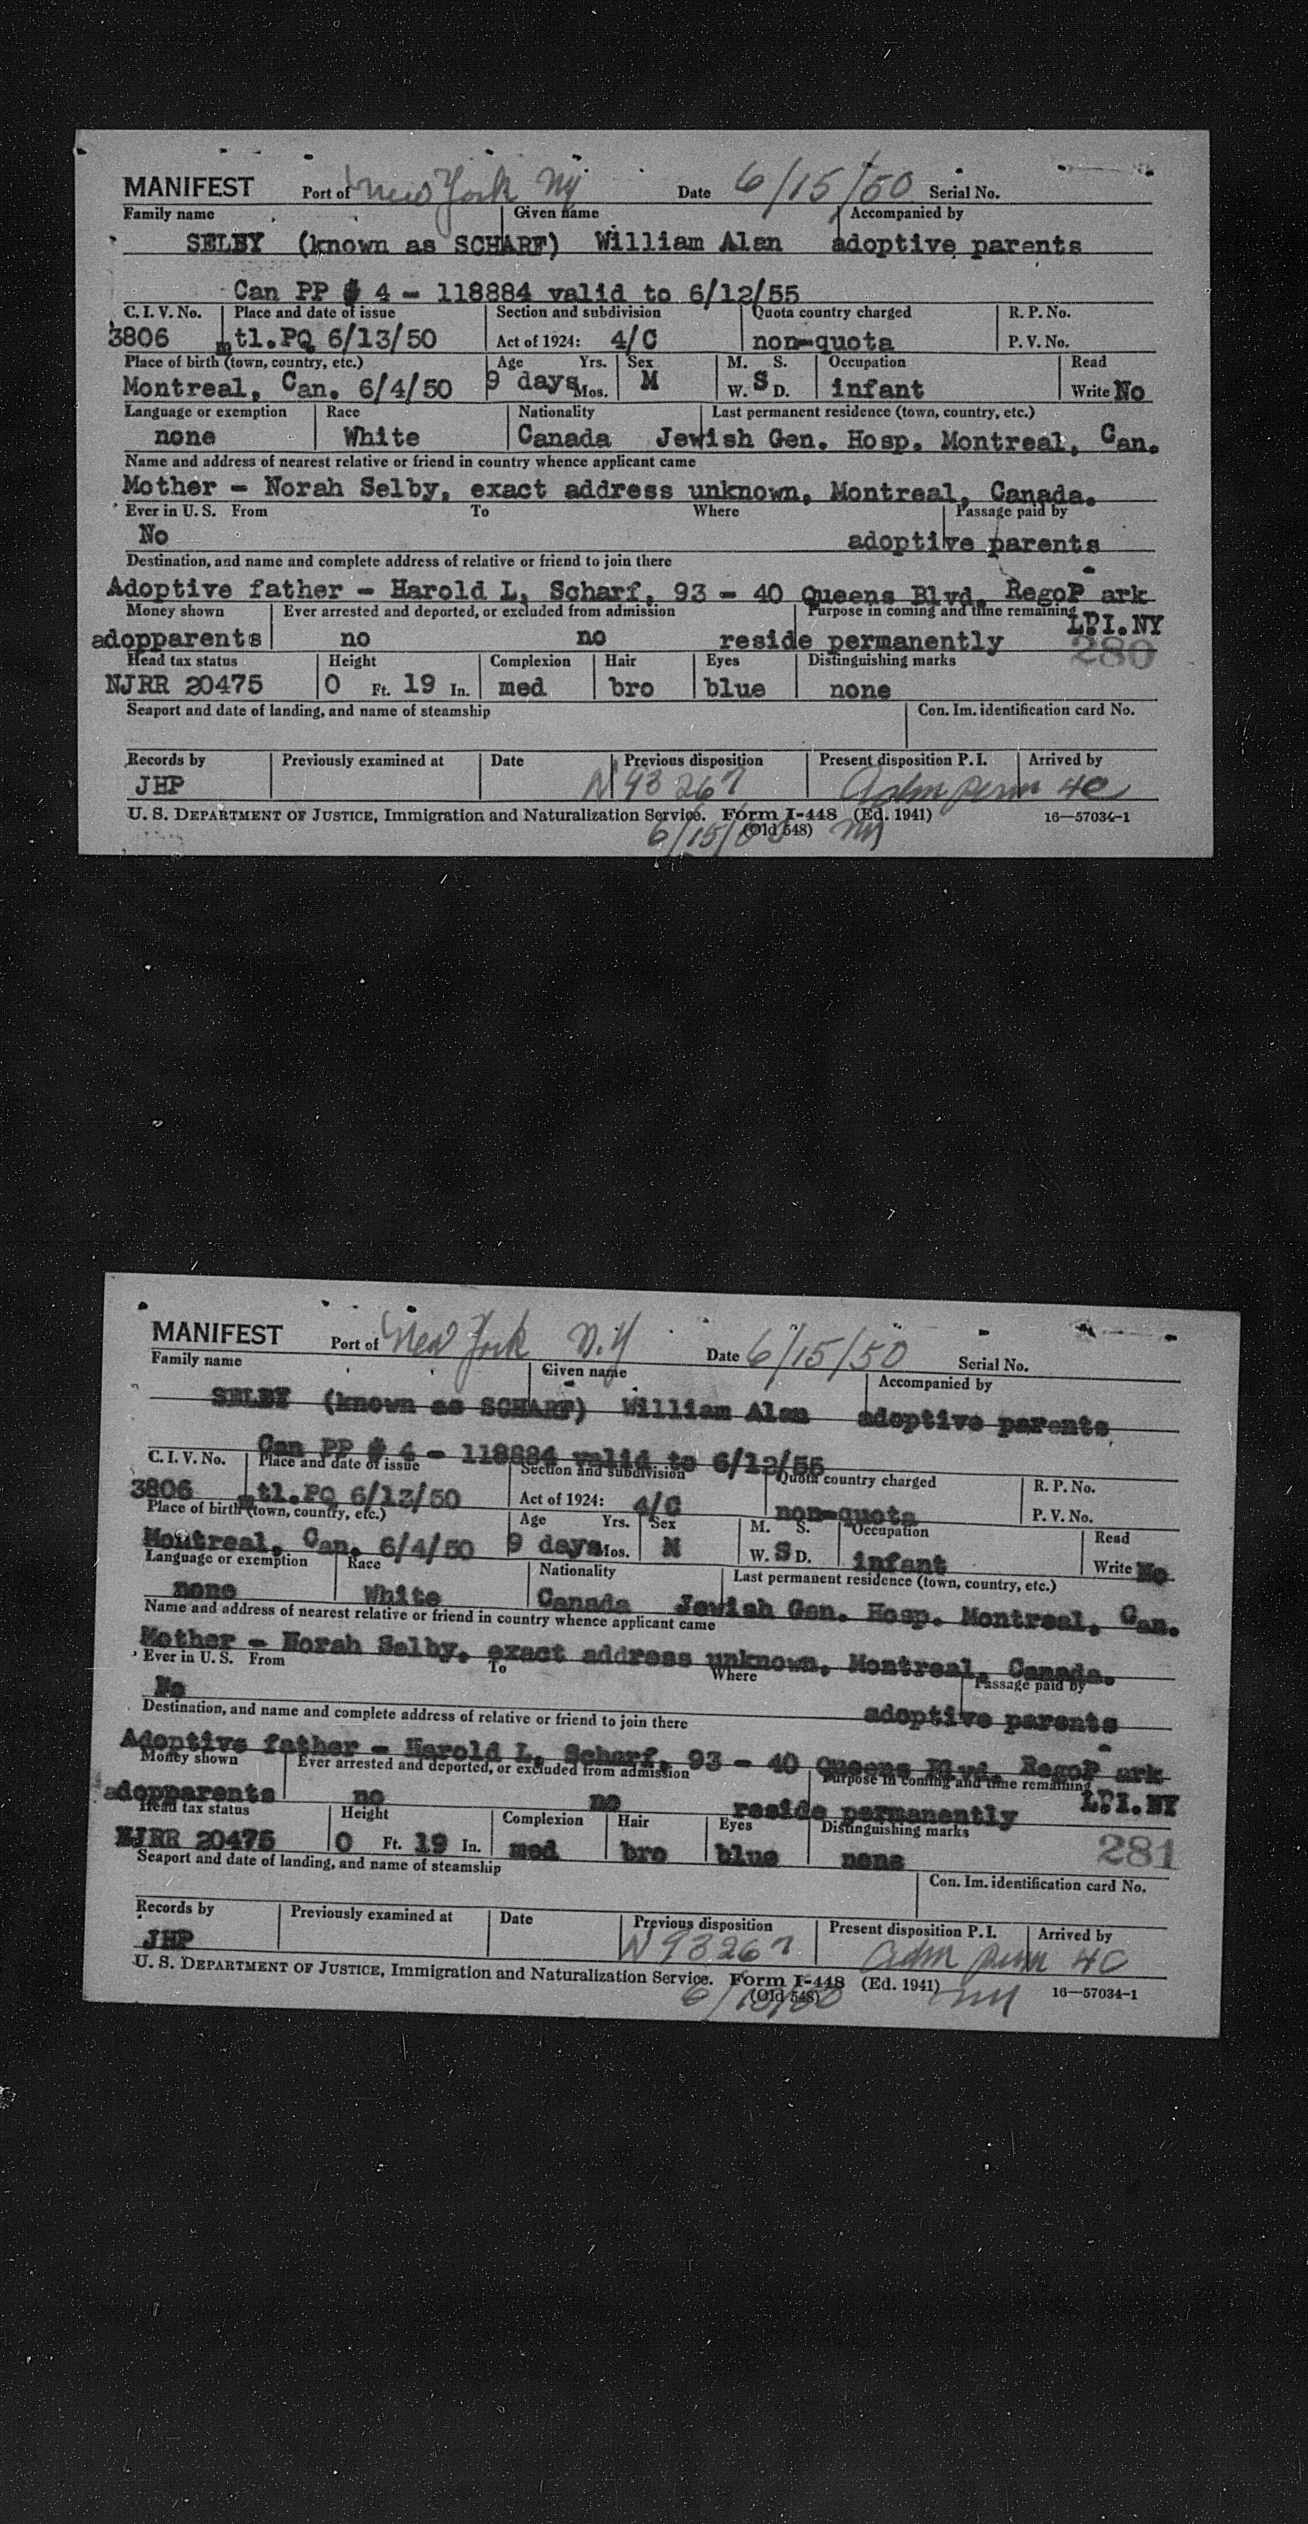 MANIFEST Port of New York NY Date 6/15/50 Serial No.
Family name Given name Accompanied by
SELBY (known as SCHARF) William Alan adoptive parents
Can PP # 4 - 118884 valid to 6/12/55
C. I. V. No. Place and date of issue Section and subdivision Quota country charged R. P. No.
3806 mtl.PQ 6/13/50 Act of 1924: 4/C non-quota P. V. No.
Place of birth (town, country, etc.) Age Yrs. Sex M. S. Occupation Read
Montreal, Can. 6/4/50 9 days Mos. M W. S D. infant Write No
Language or exemption Race Nationality Last permanent residence (town, country, etc.)
none White Canada Jewish Gen. Hosp. Montreal, Can.
Name and address of nearest relative or friend in country whence applicant came
Mother - Norah Selby, exact address unknown, Montreal, Canada.
Ever in U. S. From To Where Passage paid by
No adoptive parents
Destination, and name and complete address of relative or friend to join there
Adoptive father - Harold L. Scharf, 93 - 40 Queens Blvd. RegoP ark
Money shown Ever arrested and deported, or excluded from admission Purpose in coming and time remaining
adopparents no no reside permanently L.I.NY
280
Head tax status Height Complexion Hair Eyes Distinguishing marks
NJRR 20475 0 Ft. 19 In. med bro blue none
Seaport and date of landing, and name of steamship Con. Im. identification card No.
Records by Previously examined at Date Previous disposition Present disposition P. I. Arrived by
JHP N 93267 adm perm 4C
U. S. DEPARTMENT OF JUSTICE, Immigration and Naturalization Service. Form I-448 (Ed. 1941) 16—57034-1
6/15/50 (Old 548) NY
MANIFEST Port of New York N.Y Date 6/15/50 Serial No.
Family name Given name Accompanied by
SELBY (known as SCHARF) William Alan adoptive parents
Can PP # 4 - 118884 valid to 6/12/55
C. I. V. No. Place and date of issue Section and subdivision Quota country charged R. P. No.
3806 mtl.PQ 6/13/50 Act of 1924: 4/C non-quota P. V. No.
Place of birth (town, country, etc.) Age Yrs. Sex M. S. Occupation Read
Montreal, Can. 6/4/50 9 days Mos. M W. S D. infant Write No
Language or exemption Race Nationality Last permanent residence (town, country, etc.)
none White Canada Jewish Gen. Hosp. Montreal, Can.
Name and address of nearest relative or friend in country whence applicant came
Mother - Norah Selby, exact address unknown, Montreal, Canada.
Ever in U. S. From To Where Passage paid by
No adoptive parents
Destination, and name and complete address of relative or friend to join there
Adoptive father - Harold L. Scharf, 93 - 40 Queens Blvd. RegoP ark
Money shown Ever arrested and deported, or excluded from admission Purpose in coming and time remaining
adopparents no no reside permanently L.I.NY
Head tax status Height Complexion Hair Eyes Distinguishing marks
281
NJRR 20475 0 Ft. 19 In. med bro blue none
Seaport and date of landing, and name of steamship Con. Im. identification card No.
Records by Previously examined at Date Previous disposition Present disposition P. I. Arrived by
JHP N 93267 adm perm 4C
U. S. DEPARTMENT OF JUSTICE, Immigration and Naturalization Service. Form I-448 (Ed. 1941) 16—57034-1
6/15/50 (Old 548) NY